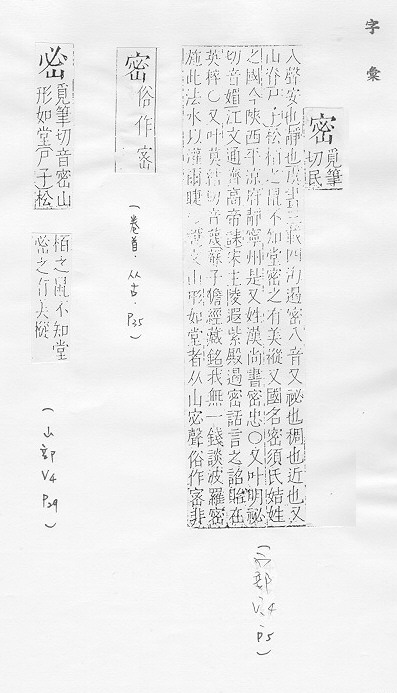 字彙
密 覓筆切民
入聲安也靜也虞書三載四海遏密八音又祕也稠也近也又
山脊尸子松栢之鼠不知堂密之有美樅又國名密須氏姞姓
之國今陝西平涼府靜寧州是又姓漢尚書密忠〇又叶明祕
切音媚江文通齊高帝誄宋主陵遐紫殿遏密話言之詔貽在
英稺〇又叶莫結切音蔑蘇子瞻經藏銘我無一錢談波羅密
施此法水以灌爾睫 山形如堂者从山宓聲俗作宻非
(宀部 V.4 P5)
密 俗作宻
(卷首.从古.P35)
密 覓筆切音密山
形如堂尸子松
栢之鼠不知堂
密之有美樅
(山部 V4 P29)